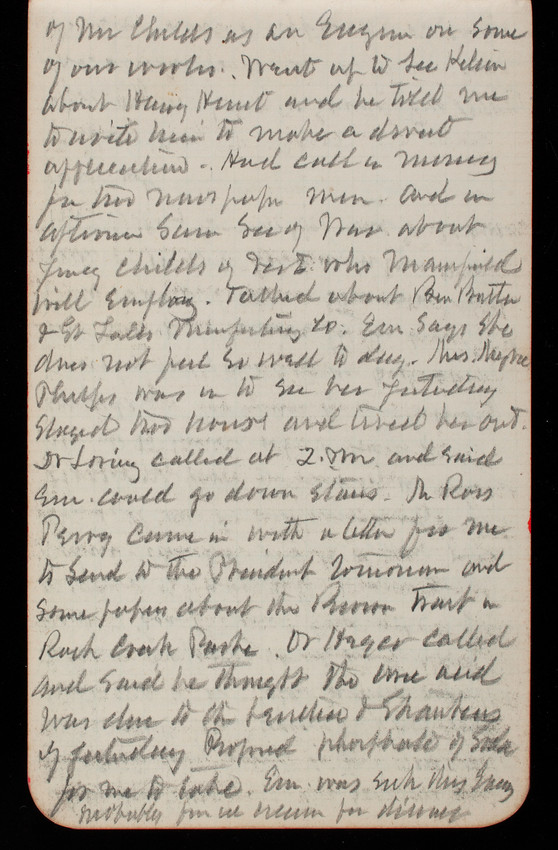 of Mr Childs as an Engine on some
of our works. Went up to see Kelin
about Harry Hunt and he told me
to write him to make a direct
application. Had call in morning
for two newspaper men and in
afternoon Saw Sec of War about
Childs of who Mansfield
will Employ. Talked about Ben Butler
& Gt Falls Manufacturing Co. Em Says She
does not feel so well to day. Mrs.
Phelps was in to see her yesterday
Stayed two hours and tired her out.
Dr Loring called at 2. and said
Em. could go down stairs. Mr Ross
Perry came in with a letter for me
to Send to the President tomorrow and
some papers about the Brown Tract in
Rock Creek Park. Dr Hagar called
and said he thought the uric acid
was due to the &
of yesterday phosphate of Soda
for me to take. Em. was sick this Eveng
probably from ice cream for dinner